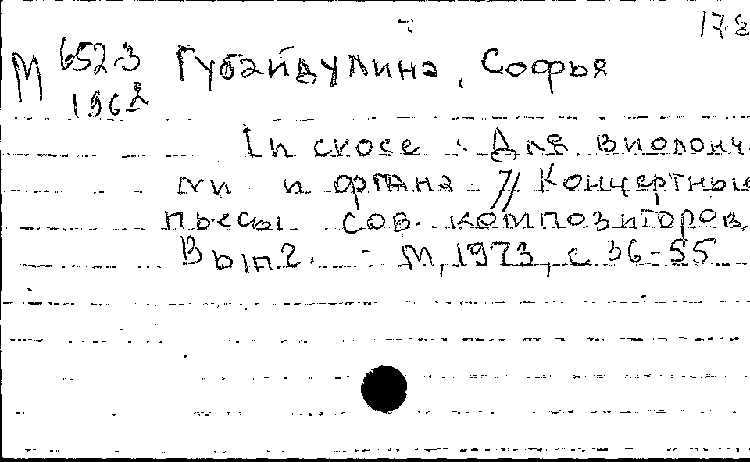 178
М 652-3 Губайдулина, Софья
1962
In croce. Для виолонч
ли и органа // Концертные
пьесы сов. композиторов.
Вып 2. - М, 1973, с 36-55